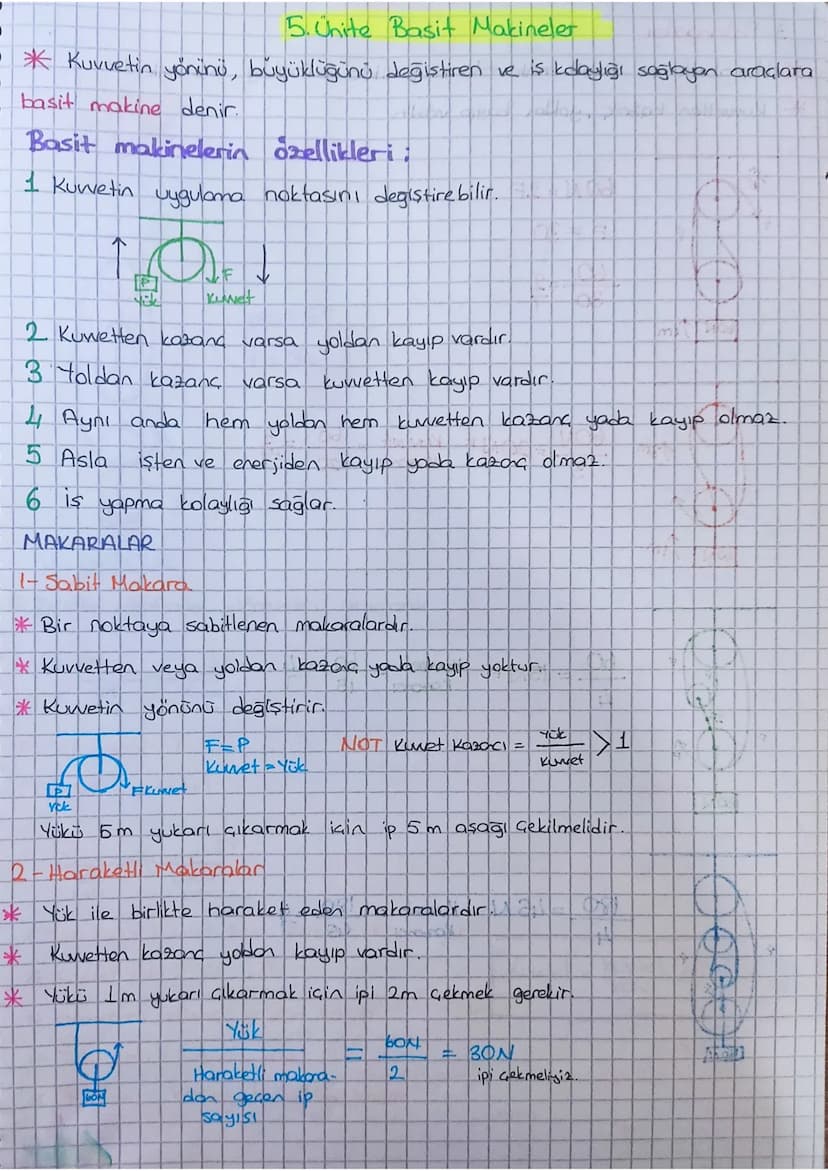 5. Ünite Basit Makineler
* Kuvvetin yönünü, büyüklüğünü değiştiren ve iş kolaylığı sağlayan araçlara
basit makine denir.
Basit makinelerin özellikleri;
1 Kuvvetin uygulama noktasını degiştirebilir.
P
F
Yük
Kuvvet
2 Kuvvetten kazanç varsa yoldan kayıp vardır.
3 Yoldan kazanç varsa kuvvetten kayıp vardır.
4 Aynı anda hem yoldan hem kuvvetten kazanç yada kayıp olmaz.
5 Asla işten ve enerjiden kayıp yada kazanç olmaz.
6 iş yapma kolaylığı sağlar.
MAKARALAR
1- Sabit Makara
* Bir noktaya sabitlenen makaralardır.
* Kuvvetten veya yoldan kazanç yada kayıp yoktur.
* Kuvvetin yönünü değiştirir.
F=P
Kuvvet = Yük
NOT Kuvvet Kazacı = Yük / Kuvvet > 1
P
Yük
F Kuvvet
Yükü 5m yukarı çıkarmak için ip 5m aşağı çekilmelidir.
2-Haraketli Makaralar
* Yük ile birlikte haraket eden makaralardır.
* Kuvvetten kazanç yoldan kayıp vardır.
* Yükü 1m yukarı çıkarmak için ipi 2m çekmek gerekir.
60N
Yük
Haraketli makara-
dan geçen ip
sayısı
= 60N / 2 = 30N
ipi çekmeliyiz.